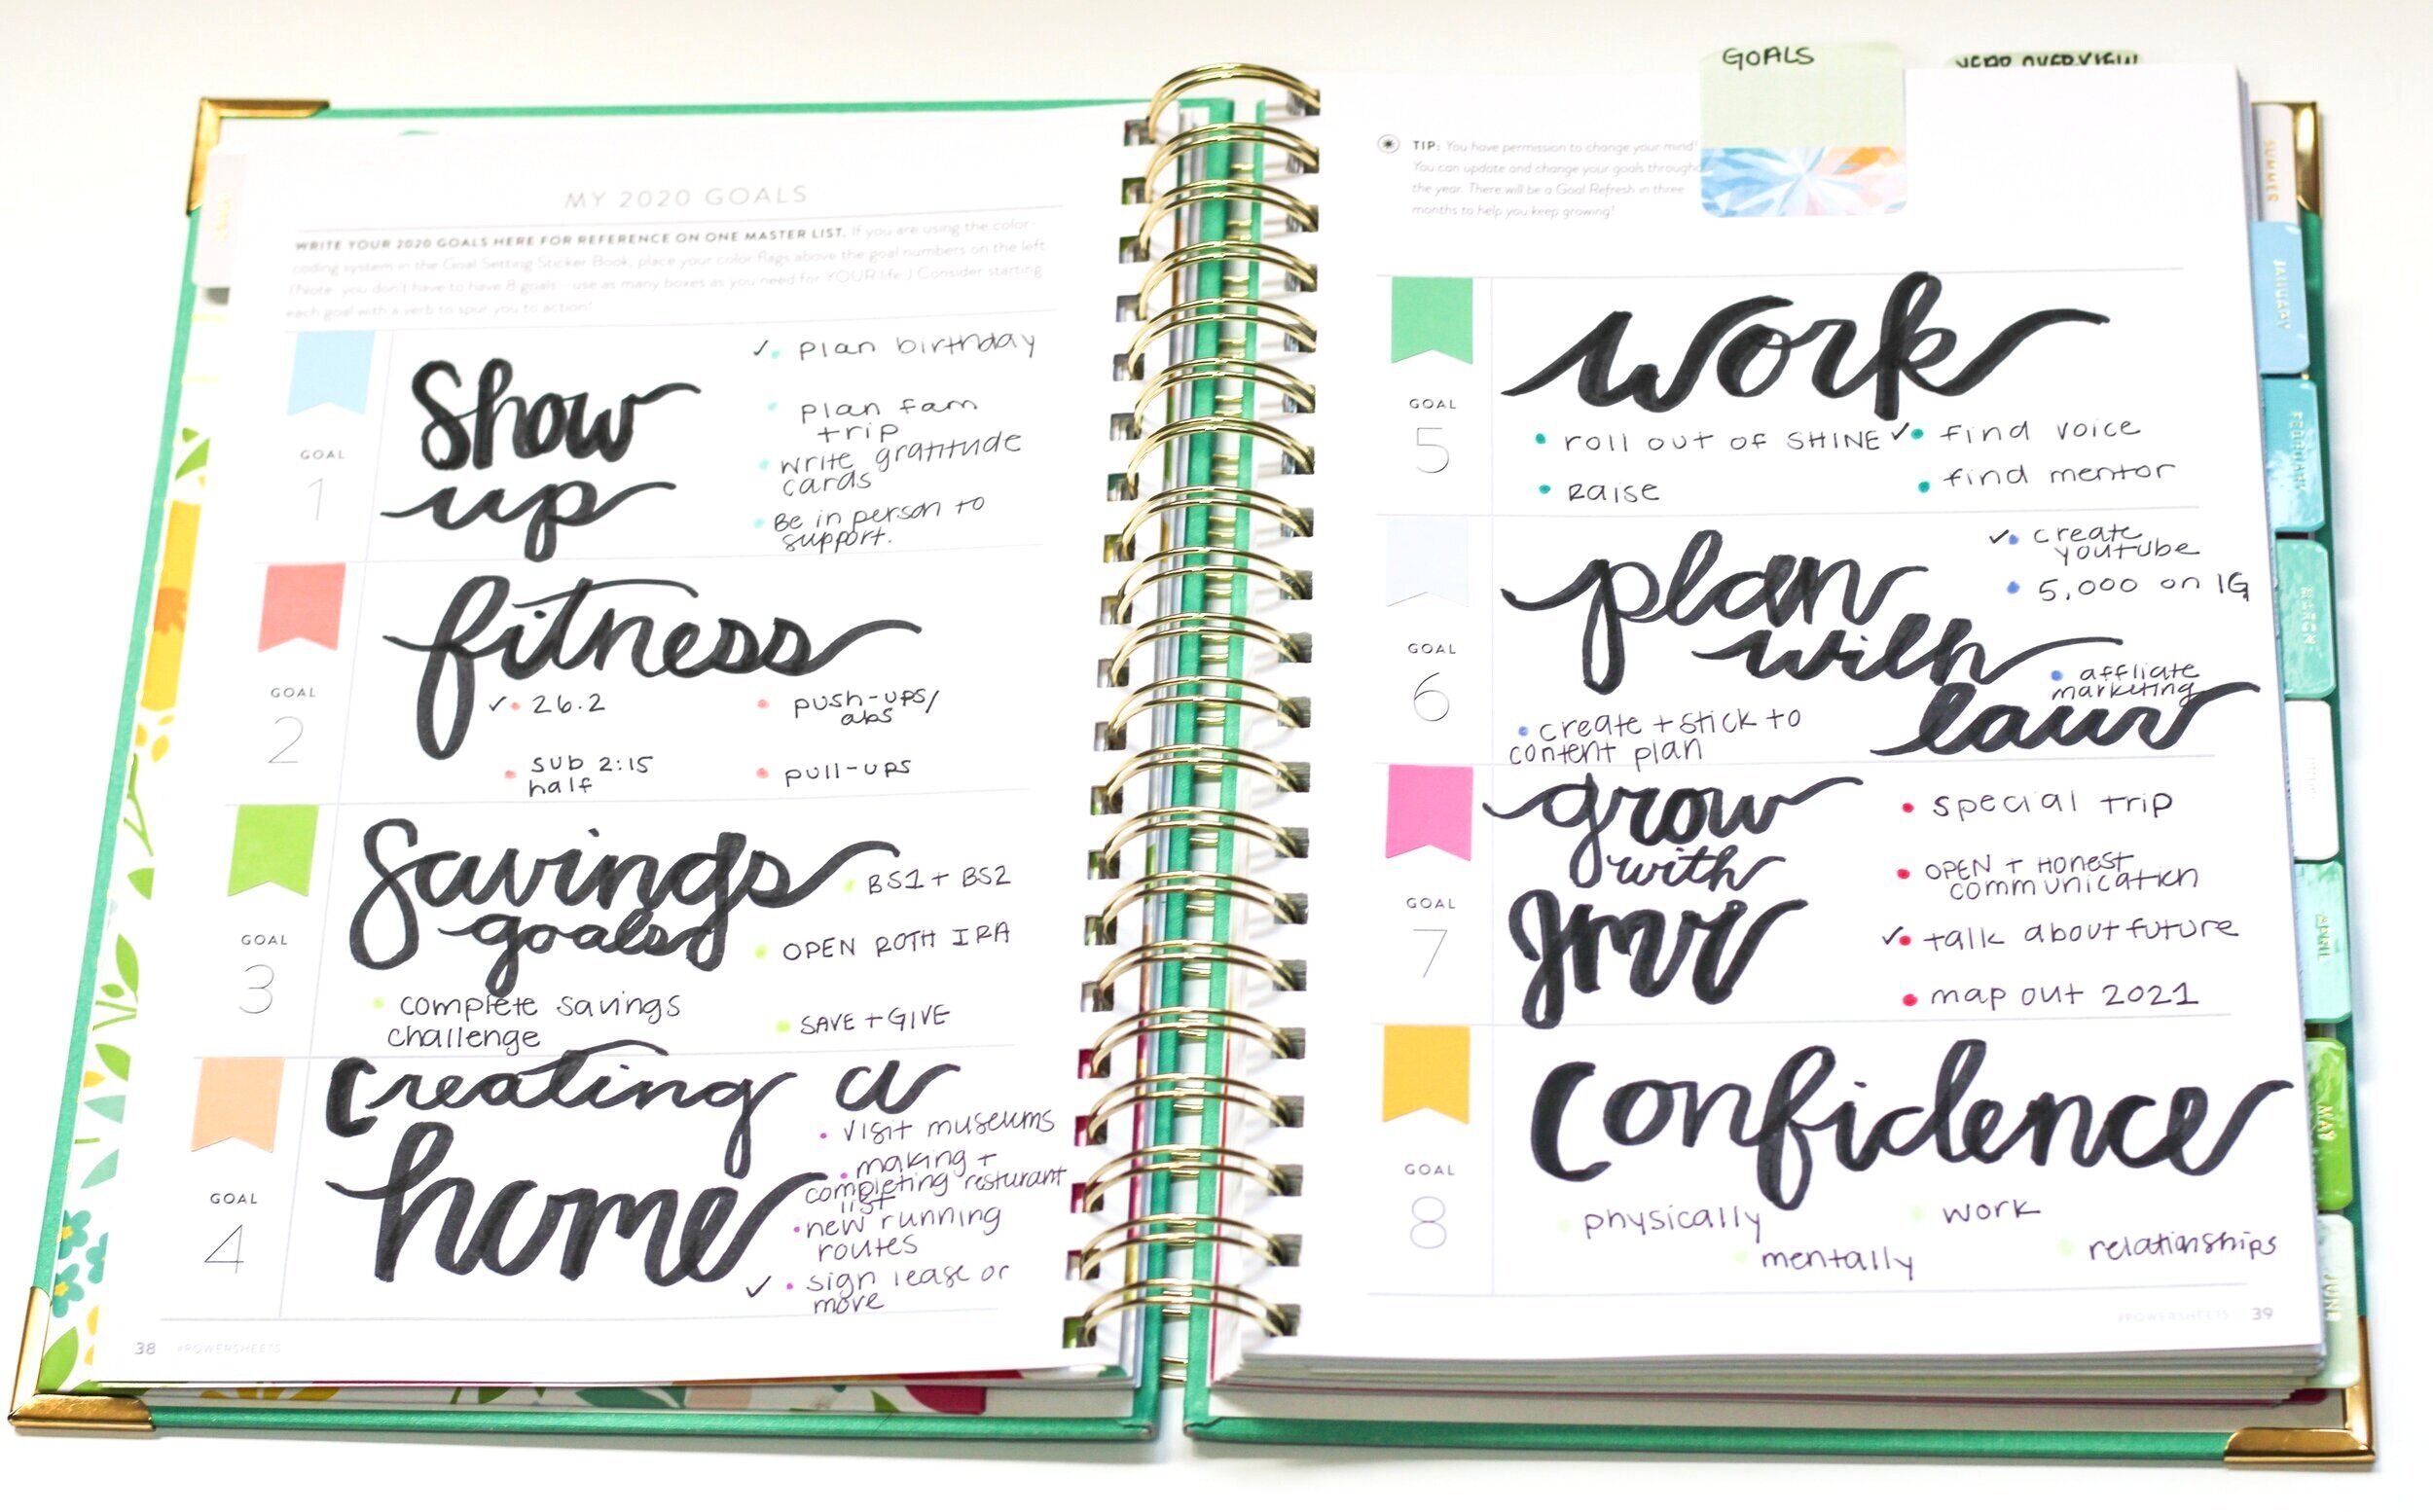 MY 2020 GOALS
WRITE YOUR 2020 GOALS HERE FOR REFERENCE ON ONE MASTER LIST. If you are using the color-
coding system in the Goal Setting Sticker Book, place your color flags above the goal numbers on the left.
(Note: you don't have to have 8 goals—use as many boxes as you need for YOUR life.) Consider starting
each goal with a verb to spur you to action!
GOAL
1
Show
up
✓• plan birthday
• plan fam
trip
• write gratitude
cards
• Be in person to
support.
GOAL
2
fitness
✓• 26.2
• push-ups/
abs
• sub 2:15
half
• pull-ups
GOAL
3
Savings
goals
• BS1 + BS2
• OPEN ROTH IRA
• complete savings
challenge
• SAVE + GIVE
GOAL
4
Creating a
home
• visit museums
• making +
completing resturant
list
• new running
routes
✓ • sign lease or
move
38 #POWERSHEETS
GOALS
YEAR OVERVIEW
TIP: You have permission to change your mind!
You can update and change your goals
the year. There will be a Goal Refresh in three
months to help you keep growing!
GOAL
5
work
• roll out of SHINE
✓• find voice
• Raise
• find mentor
GOAL
6
plan
with
laur
✓• create
youtube
• 5,000 on IG
• affliate
marketing
• create + stick to
content plan
GOAL
7
grow
with
• special trip
• OPEN + Honest
communication
✓• talk about future
• map out 2021
GOAL
8
Confidence
• physically
• mentally
• work
• relationships
#POWERSHEETS 39
SUMMER
JANUARY
FEBRUARY
MARCH
APRIL
MAY
JUNE